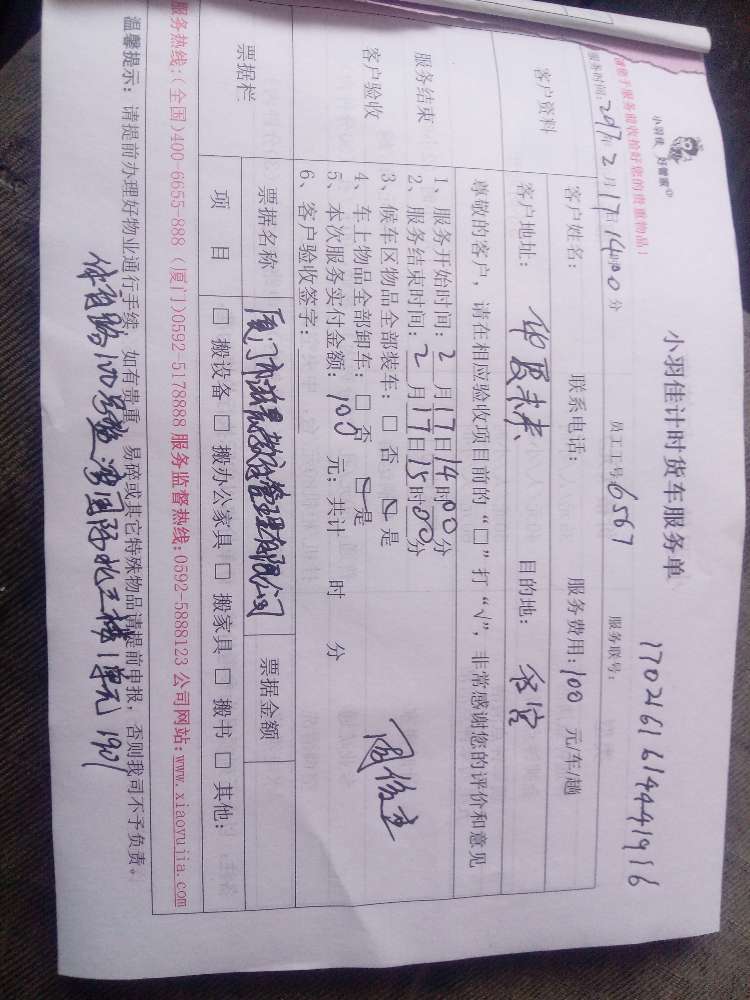 小羽佳 好管家
小羽佳计时货车服务单
17021616144441916
服务时间:2017年2月17日14时00分 员工工号6567 服务联号:
客户资料
客户姓名: 联系电话: 服务费用:100 元/车/趟
客户地址: 华夏未来 目的地:
尊敬的客户,请在相应验收项目前的“□”打“√”,非常感谢您的评价和意见
服务结束
客户验收
1、服务开始时间:2月17日14时00分
2、服务结束时间:2月17日15时00分
3、候车区物品全部装车:□ 否 ☑ 是
4、车上物品全部卸车:□ 否 ☑ 是
5、本次服务实付金额:100元;共计 时 分
6、客户验收签字:
票据栏
票据名称 厦门市 管理有限公司 票据金额
项 目 □ 搬设备 □ 搬办公家具 □ 搬家具 □ 搬书 □ 其他:
服务热线:(全国)400-6655-888 (厦门)0592-5178888 服务监督热线:0592-5888123 公司网站:www.xiaoyujia.com
温馨提示: 请提前办理好物业通行手续,如有贵重、易碎或其它特殊物品请提前申报,否则我司不予负责。
体育路 国际 1单元 1901